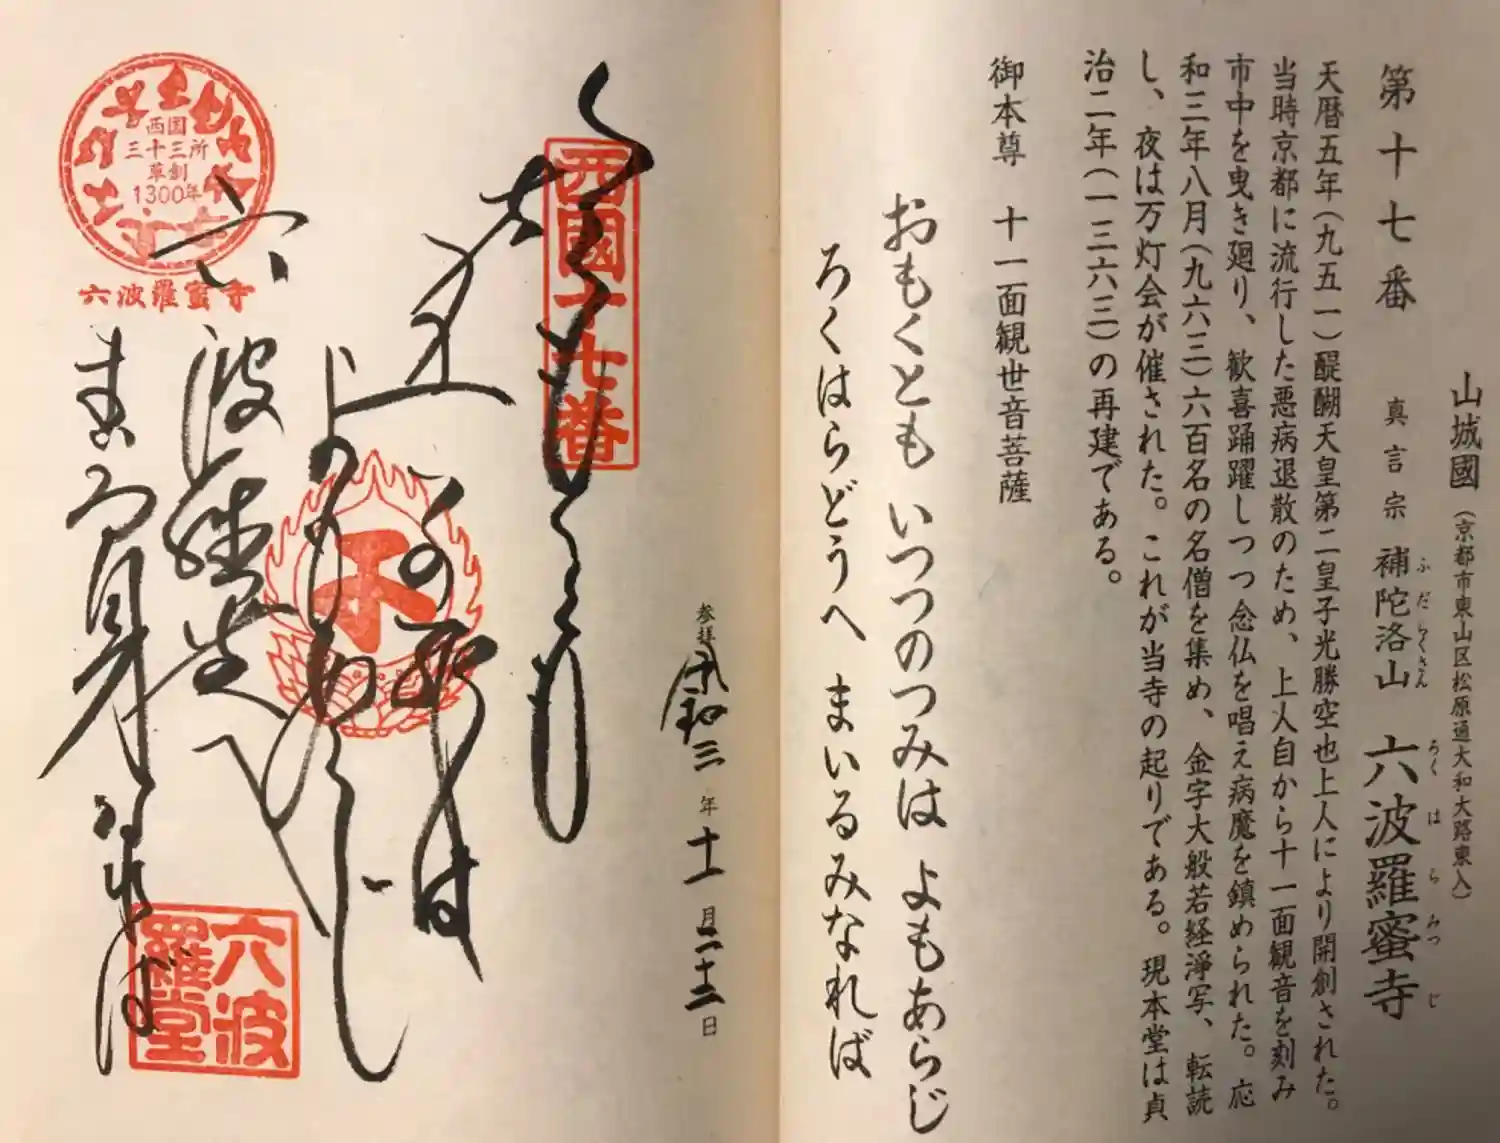 山城國(京都市東山区松原通大和大路東入)
第十七番 真言宗 補陀洛山 六波羅蜜寺
ふだらくさん ろくはらみつじ
天暦五年(九五一)醍醐天皇第二皇子光勝空也上人により開創された。
当時京都に流行した悪病退散のため、上人自から十一面観音を刻み
市中を曳き廻り、歓喜踊躍しつつ念仏を唱え病魔を鎮められた。応
和三年八月(九六三)六百名の名僧を集め、金字大般若経浄写、転読
し、夜は万灯会が催された。これが当寺の起りである。現本堂は貞
治二年(一三六三)の再建である。
御本尊 十一面観世音菩薩
おもくとも いつつのつみは よもあらじ
ろくはらどうへ まいるみなれば
参拝 令和三年十一月二十二日
西國十七番
よもあらじ
六波羅堂へ
西国
三十三所
草創
1300年
六波羅蜜寺
六波羅堂